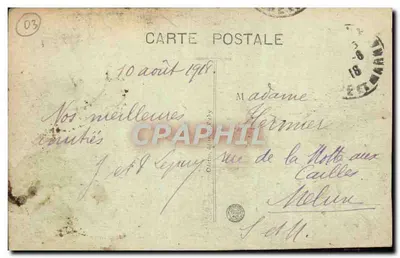 03
CARTE POSTALE
10 août 1918.
Nos meilleures
amitiés
J et
Madame
Hermier
rue de la Motte aux
Cailles
Melun
S et M.
CPARAMA